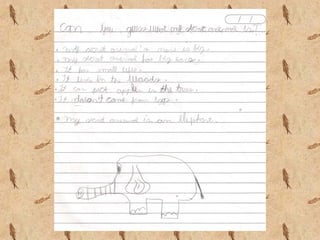 Can you guess what my secret animal is?
• My secret animal's nose is big.
• My secret animal has big ears.
• It has small eyes.
• It lives in the Woods.
• It can pick apples in the tree.
• It doesn't come from eggs.
• My secret animal is an